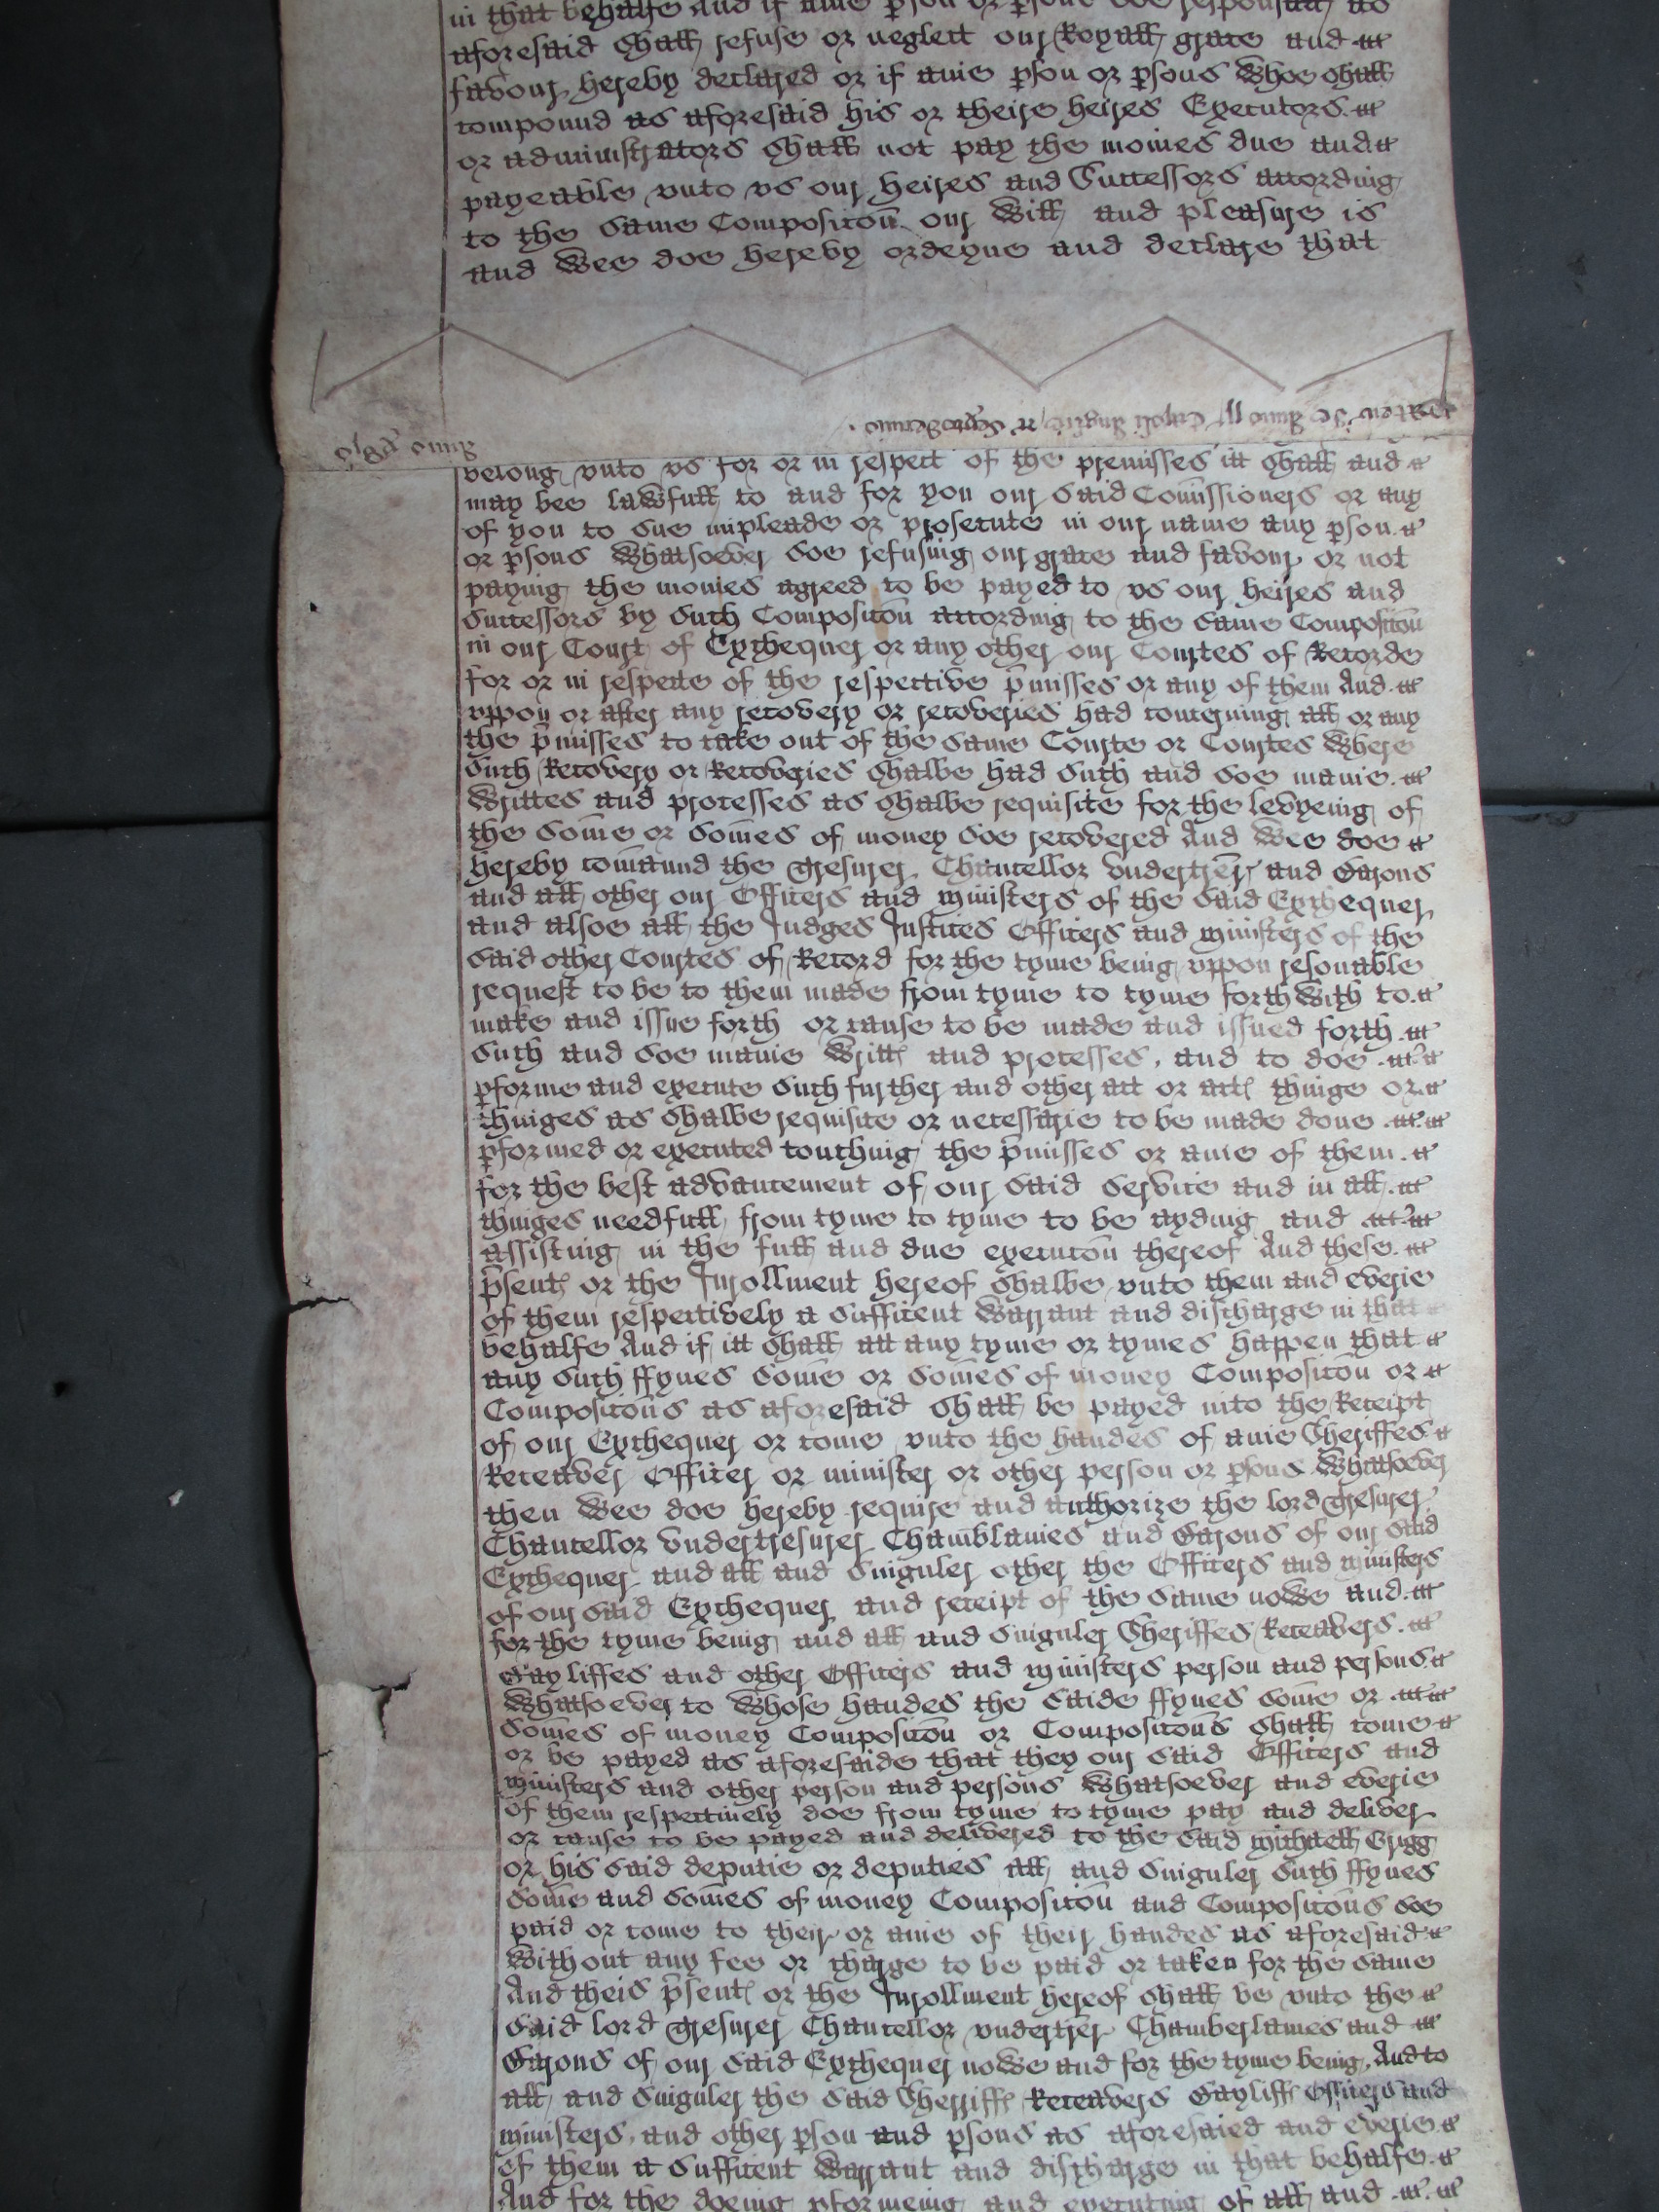 in that behalfe And if anie pson or psons soe responsall as
aforesaid shall refuse or neglect our Royall grace and
favour hereby declared or if anie pson or psons whoe shall
compound as aforesaid his or theire heires Executors
or administrators shall not pay the monies due and
payeable vnto vs our heires and Successors according
to the same Compositōn our will and pleasure is
and wee doe hereby ordeyne and declare that
belong vnto vs for or in respect of the premisses itt shall and
may bee lawfull to and for you our said Comissioners or any
of you to sue impleade or prosecute in our name any pson
or psons whatsoever soe refusing our grace and favour or not
paying the monies agreed to be payed to vs our heires and
Successors by such Compositōn according to the same Compositōn
in our Court of Exchequer or any other our Courtes of Recorde
for or in respecte of the respective pmisses or any of them And
vppon or after any recovery or recoveries had concerning all or any
the pmisses to take out of the same Courte or Courtes where
such Recovery or Recoveries shalbe had such and soe manie
writtes and processes as shalbe requisite for the levyeing of
the some or somes of money soe recovered And wee doe
hereby comaund the Tresurer Chancellor vndertrer and Barons
and all other our Officers and ministers of the said Exchequer
and alsoe all the Judges Justices Officers and ministers of the
said other Courtes of Record for the tyme being vppon resonable
request to be to them made from tyme to tyme forthwith to
make and issue forth or cause to be made and issued forth
such and soe manie writt and processes, and to doe
pforme and execute such further and other act or act thinge or
thinges as shalbe requisite or necessarie to be made done
pformed or executed touching the pmisses or anie of them
for the best advancement of our said service and in all
thinges needfull from tyme to tyme to be ayding and
assisting in the full and due executōn thereof And these
psent or the Inrollment hereof shalbe vnto them and everie
of them respectively a sufficent warrant and discharge in that
behalfe And if itt shall att any tyme or tymes happen that
any such ffynes some or somes of money Compositōn or
Compositōns as aforesaid shall be payed into the Receipt
of our Exchequer or come vnto the handes of anie Sheriffes
Receaver Officer or minister or other person or psons whatsoever
then wee doe hereby require and authorize the lord Tresurer
Chancellor vndertresurer Chamblanies and Barons of our said
Exchequer and all and singuler other the Officers and ministers
of our said Exchequer and receipt of the same nowe and
for the tyme being and all and singuler Sheriffes Receavers
Bayliffes and other Officers and ministers person and persons
whatsoever to whose handes the saide ffynes some or
somes of money Compositōn or Compositōns shall come
or be payed as aforesaide that they our said Officers and
ministers and other person and persons whatsoever and everie
of them respectiuely doe from tyme to tyme pay and deliver
or cause to be payed and delivered to the said Michaell Grigg
or his said deputie or deputies all and singuler such ffynes
some and somes of money Compositōn and Compositōns soe
paid or come to their or anie of their handes as aforesaid
without any fee or charge to be paid or taken for the same
And theis psent or the Inrollment hereof shall be vnto the
said lord Tresurer Chancellor vndertrer Chamberlaines and
Barons of our said Exchequer nowe and for the tyme being And to
all and singuler the said Sherriff Receavers Bayliff Officers and
ministers, and other pson and psons as aforesaied and everie
of them a sufficent warrant and discharge in that behalfe
And for the doeing pformeing and executing of all and